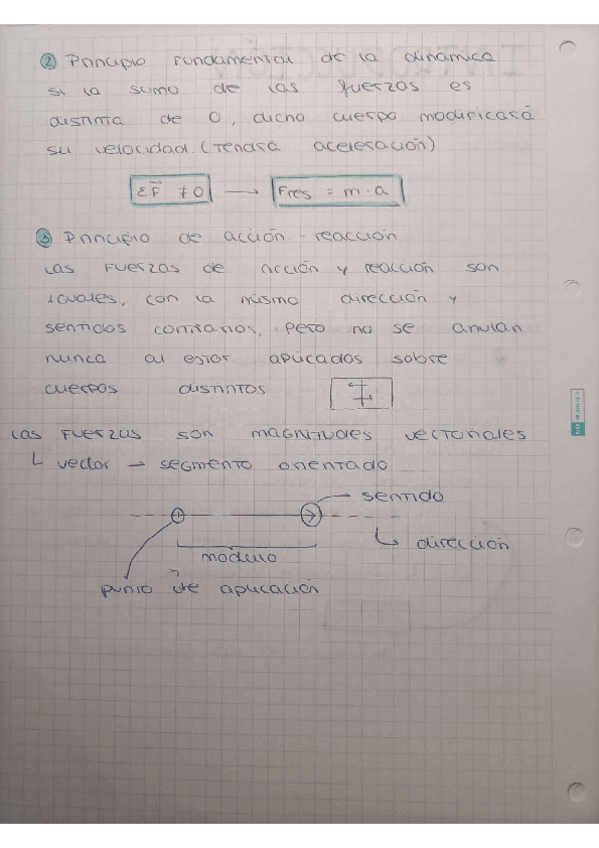 ② Principio fundamental de la dinámica
si la suma de las fuerzas es
distinta de 0, dicho cuerpo modificará
su velocidad (tendrá aceleración)
ΣF⃗ ≠ 0 → Fres = m · a
③ Principio de acción - reacción
Las fuerzas de acción y reacción son
iguales, con la misma dirección y
sentidos contrarios, pero no se anulan
nunca al estar aplicados sobre
cuerpos distintos
Las fuerzas son magnitudes vectoriales
↳ vector → segmento orientado
sentido
dirección
modulo
punto de aplicación